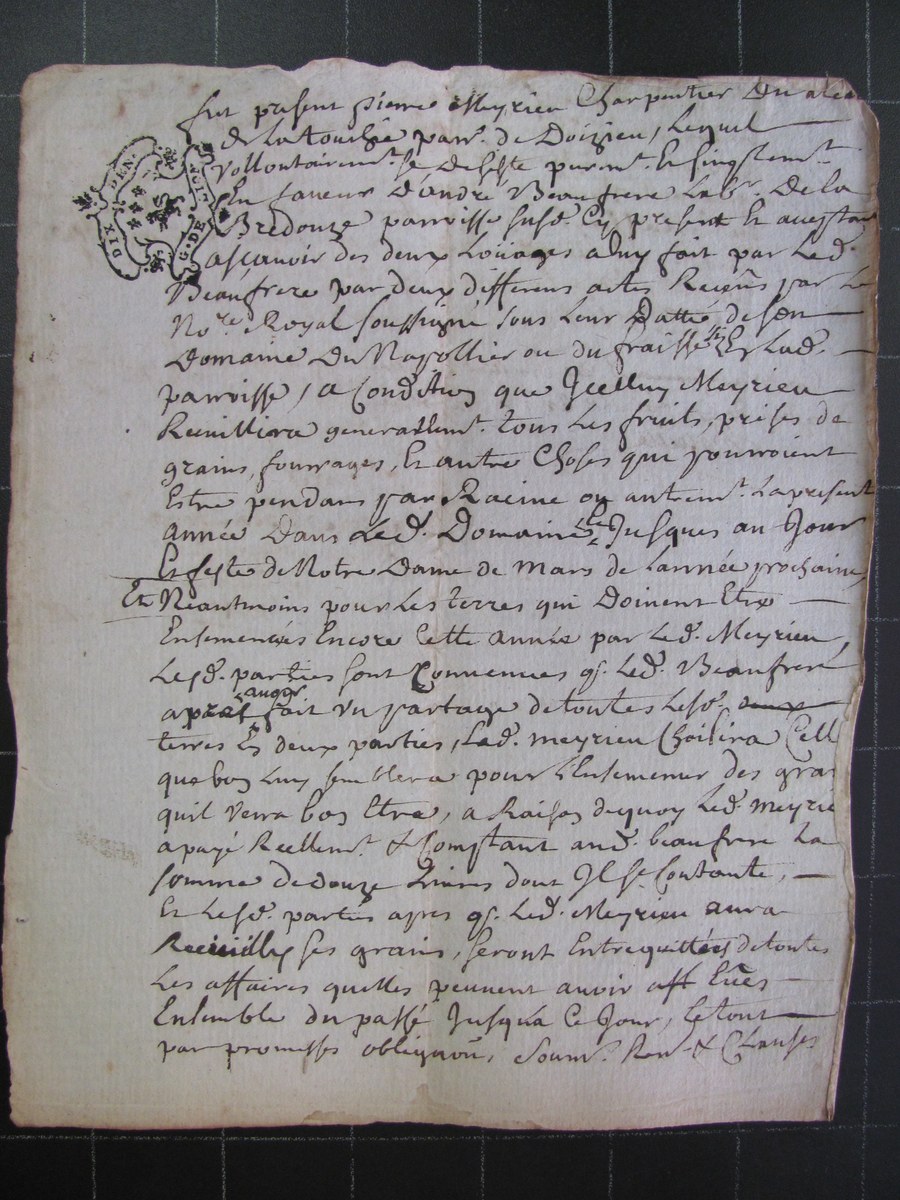 fut present pierre Meyrieu Charpentier Du
de La touchie parr. de Doizieu, Lequel
vollontairemt. se desiste puremt. Et simplemt.
En faveur D'andré Beaufrere Labr. De La
Bredouze parroisse susd. Cy present Et aceptant
ascavoir des deux Loüages a Luy fait par Led.
Beaufrere par deux differens actes Receus par Le
Nore. Royal soussigné sous Leur Datte de son
Domaine Du Napollier ou du fraisse Lad.
parroisse, a Condition que Jcelluy Meyrieu
Reuillira generallemt. tous Les fruits, prises de
grains, fourrages, Et autre Choses qui pourroient
Estre pendans par Racine ou autremt. La present
année Dans Led. Domaine Jusques au Jour
Et feste de Notre Dame de mars de L'année prochaine,
Et Neantmoins pour Les terres qui Doivent Etre
Ensemencées Encore Cette année par Led. Meyrieu
Lesd. parties sont Convenues q. Led. Beaufrere
apres avoir fait un partage de toutes Lesd.
terres En deux parties, Led. meyrieu Choisira Cell
que bon Luy semblera pour L'Ensemencer des gra
quil verra bon Etre, a Raison dequoy Led. Meyrie
a payé Reellemt. & Comptant aud. beaufrere La
somme de douze Livres dont Il se Contante,
Et Lesd. parties apres q. Led. Meyrieu aura
Recuilly ses grains, seront Entrequittées de toutes
Les affaires quelles peuvent avoir Eües
Ensemble du passé Jusqua Ce Jour, Le tout
par promesses obligaõn, Soumn. Ren. & Clauses
DIX DEN.
G. DE